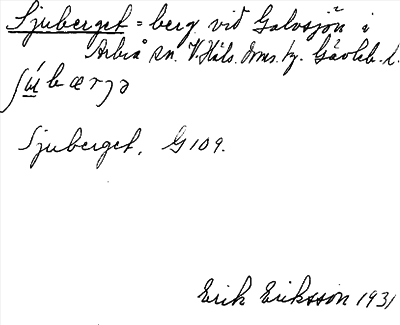 Sjuberget = berg vid Galvsjön i
Arbrå sn. V. Häls. doms. hg. Gävleb. l.
ʃúbærjə
Sjuberget, G 109.
Erik Eriksson 1931